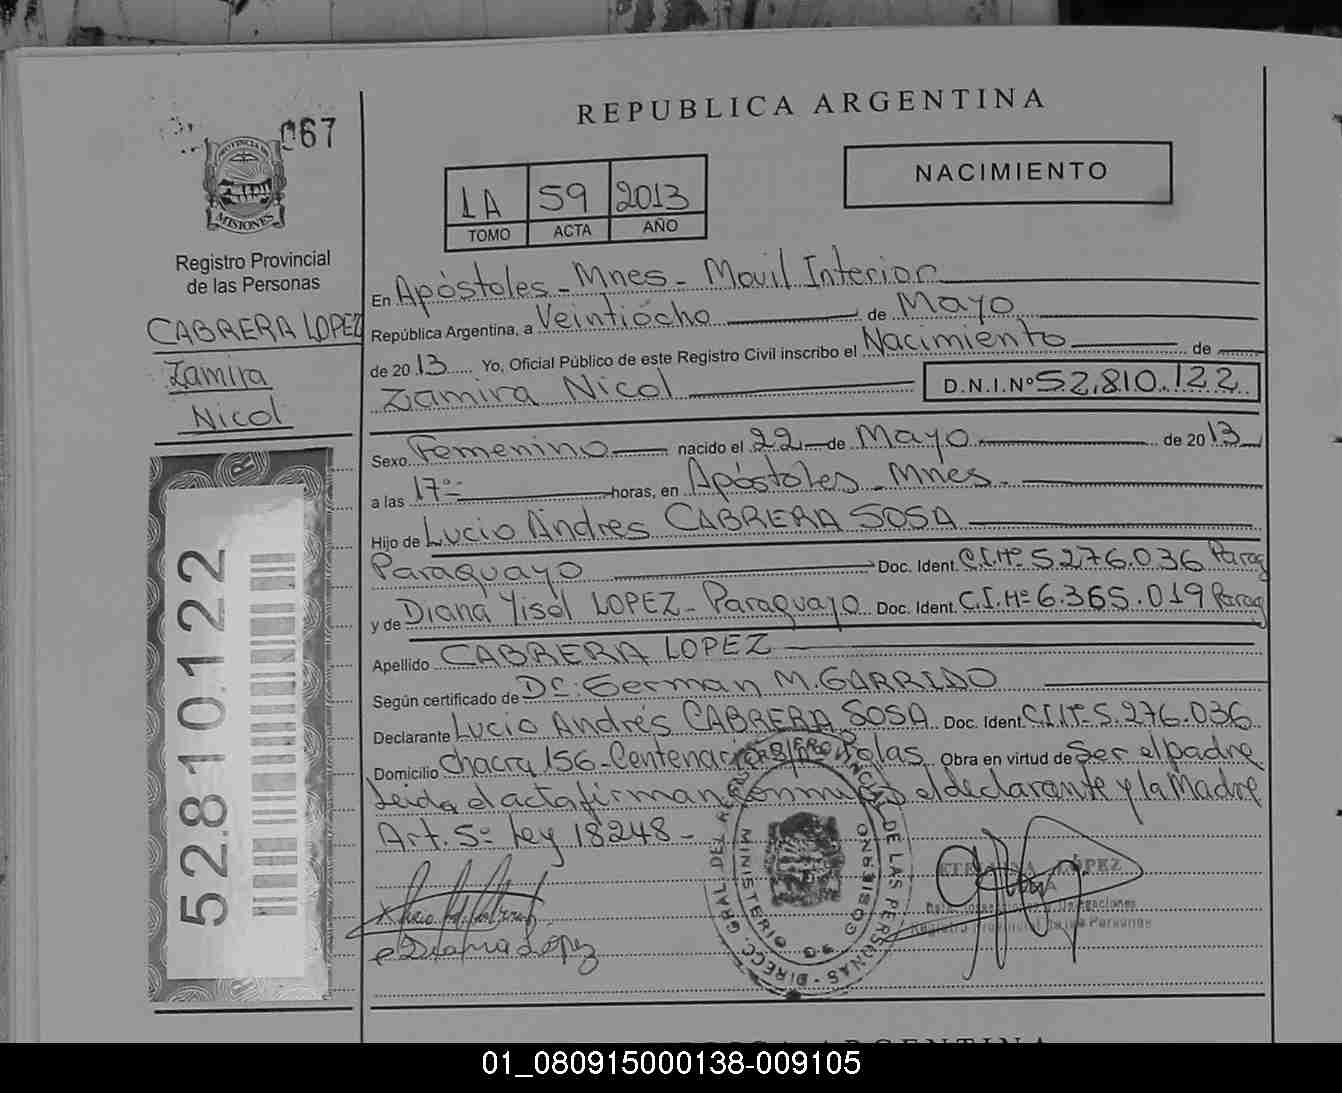 067
PROVINCIA DE
MISIONES
Registro Provincial
de las Personas
CABRERA LOPEZ
Zamira
Nicol
52.810.122
REPUBLICA ARGENTINA
1A 59 2013
TOMO ACTA AÑO
NACIMIENTO
En Apóstoles - Mnes - Movil Interior
República Argentina, a Veintiócho de Mayo
de 2013 Yo, Oficial Público de este Registro Civil inscribo el Nacimiento de
Zamira Nicol D.N.I.Nº 52.810.122
Sexo Femenino nacido el 22 de Mayo de 2013
a las 17º= horas, en Apóstoles - Mnes -
Hijo de Lucio Andres CABRERA SOSA
Paraguayo Doc. Ident. C.I.Nº 5.276.036 Parag
y de Diana Yisel LOPEZ - Paraguayo Doc. Ident. C.I.Nº 6.365.019 Parag
Apellido CABRERA LOPEZ
Según certificado de Dr. German M. GARRIDO
Declarante Lucio Andrés CABRERA SOSA Doc. Ident. C.I.Nº 5.276.036
Domicilio Chacra 156 - Centenario S/Nº Obra en virtud de Ser el padre
Leida el acta firman el declarante y la Madre
Art. 5= Ley 18248 -
Diana López
DIRECC. GRAL DEL REG. PROVINCIAL DE LAS PERSONAS
MINISTERIO DE GOBIERNO
LÓPEZ
Delegaciones
Registro Provincial de las Personas
ARGENTINA
01_080915000138-009105